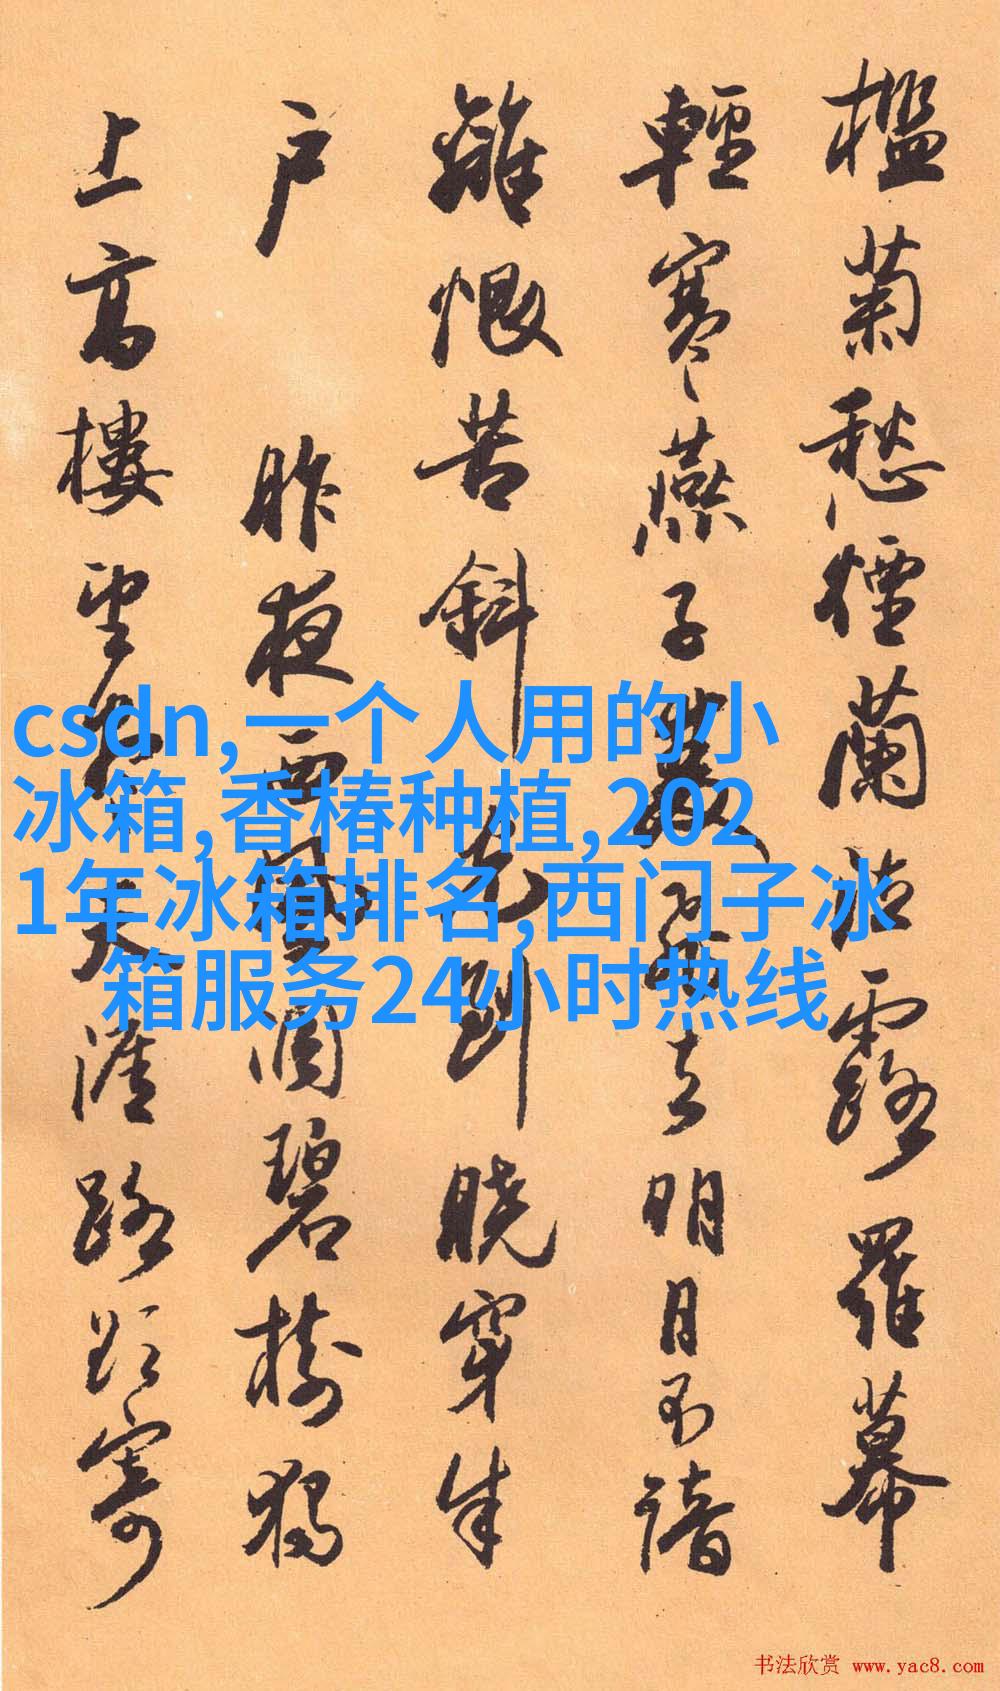 檻菊愁煙蘭泣露羅幕
輕寒燕子雙飛去明月不諳
離恨苦斜光到曉穿朱
户 昨夜西風凋碧樹獨
上高樓望盡天涯路欲寄
csdn,一个人用的小
冰箱,香椿种植,202
1年冰箱排名,西门子冰
箱服务24小时热线
书法欣赏 www.yac8.com